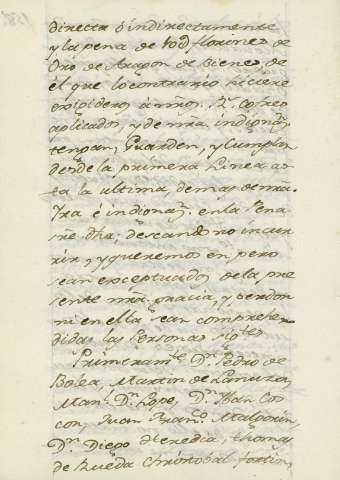 directa ó indirectamente
y la pena de 400 florines de
Oro de Aragon de bienes de
el que lo contrario hiciere
exigideros á nros. Rs. cofres
aplicados, y de nra. indignon.
tengan, Guarden, y Cumplan
desde la primera Linea as-
ta la ultima demas de nra.
Ira é indignon. en la pena
sre. dha; deseando no incur-
rir, y queremos en pero
sean exceptuados de la pre
sente nra. gracia, y perdon
ni en ella sean comprehen
didas las Personas sigtes.
Primeramte. Dn. Pedro de
Bolea, Martin de Lanuza,
Manl. Dn. Lope, Dn. Juan Cos
con, Juan Franco. Malgorin,
Dn. Diego de eredia, thomas
de Rueda christobal fontin,